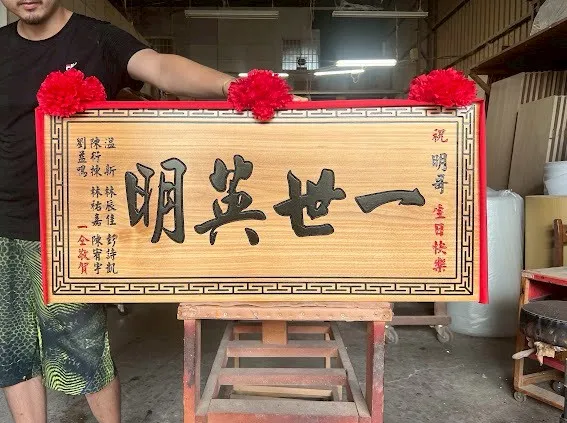 祝 明哥 生日快樂
一世英明
溫新 林辰佳 彭詩凱
陳衍棟 林祐嘉 陳宥宇
劉益鳴 一仝敬賀